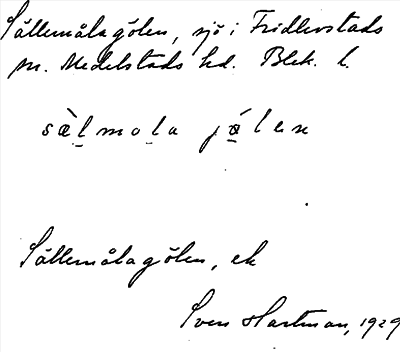 Sällemålagölen, sjö i Fridlevstads
sn. Medelstads hd. Blek. l.
sæ̀l̠mola jø̠len
Sällemålagölen, ek
Sven Hartman, 1929